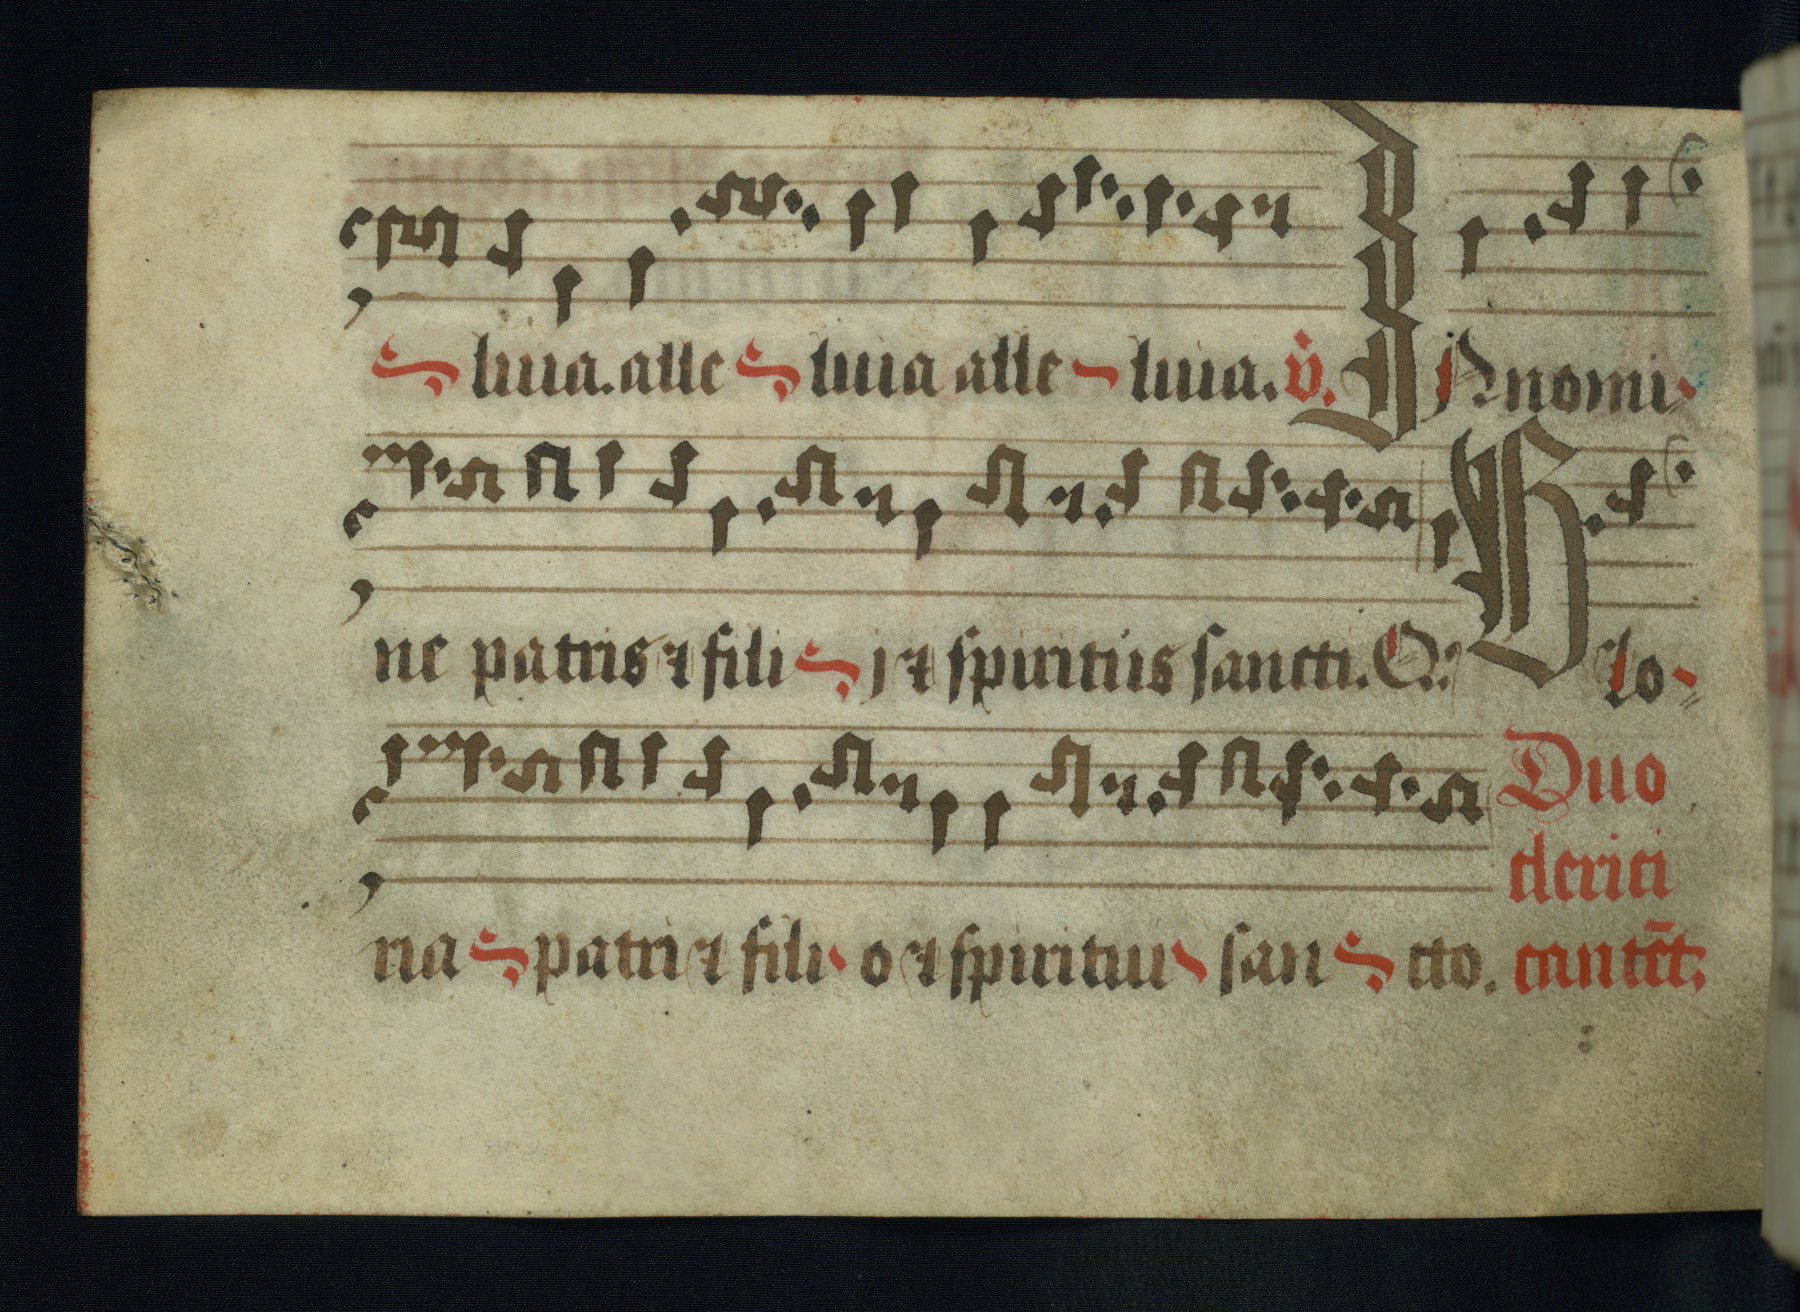 luia. alle luia alle luia. v̄. IN nomi
ne patris ⁊ fili j ⁊ spiritus sancti. Q. Glo
ria patri ⁊ fili o ⁊ spiritui san cto.
Duo
clerici
cantēt